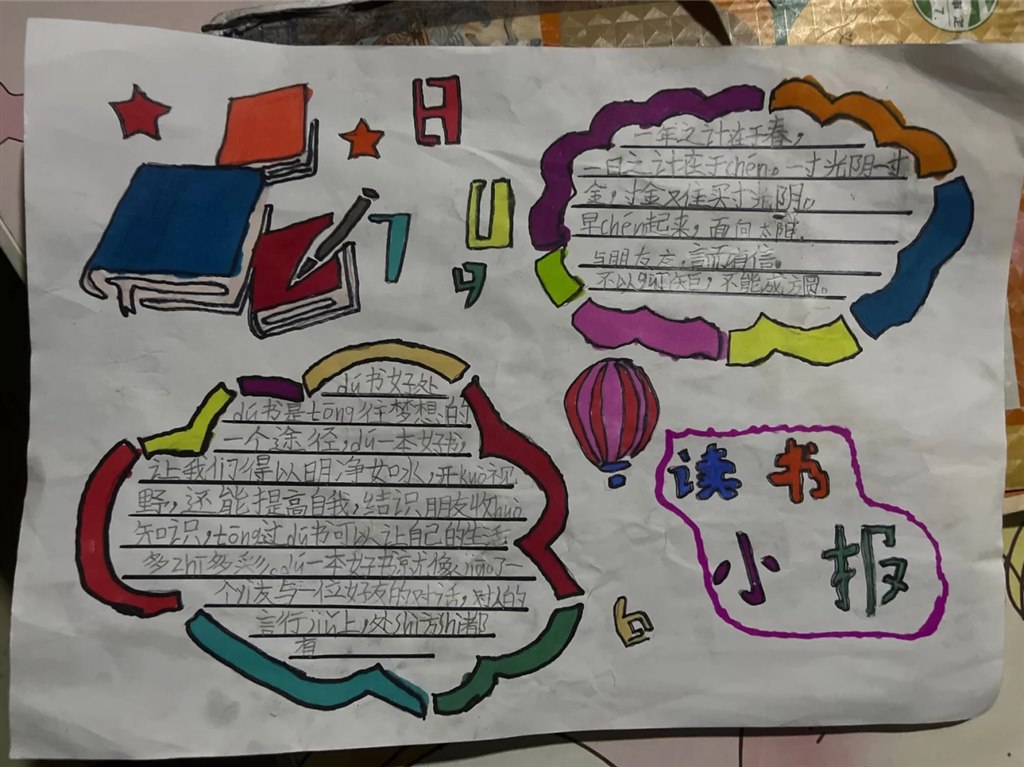 一年之计在于春，
一日之计在于chén。一寸光阴一寸
金，寸金又住买寸光阴。
早chén起来，面向太阳，
与朋友交，言而有信。
不以规矩，不能成方圆。
dú书好处
dú书是tōng行梦想的
一个途径，dú一本好书，
让我们得以明净如水，开kuò视
野，还能提高自我，结识朋友收huò
知识，tōng过dú书可以让自己的生活
多zhī多彩。dú一本好书就像
个川友与一位好友的对话，对人的
言行jǔ上，处shì方shì都
有
读书
小报